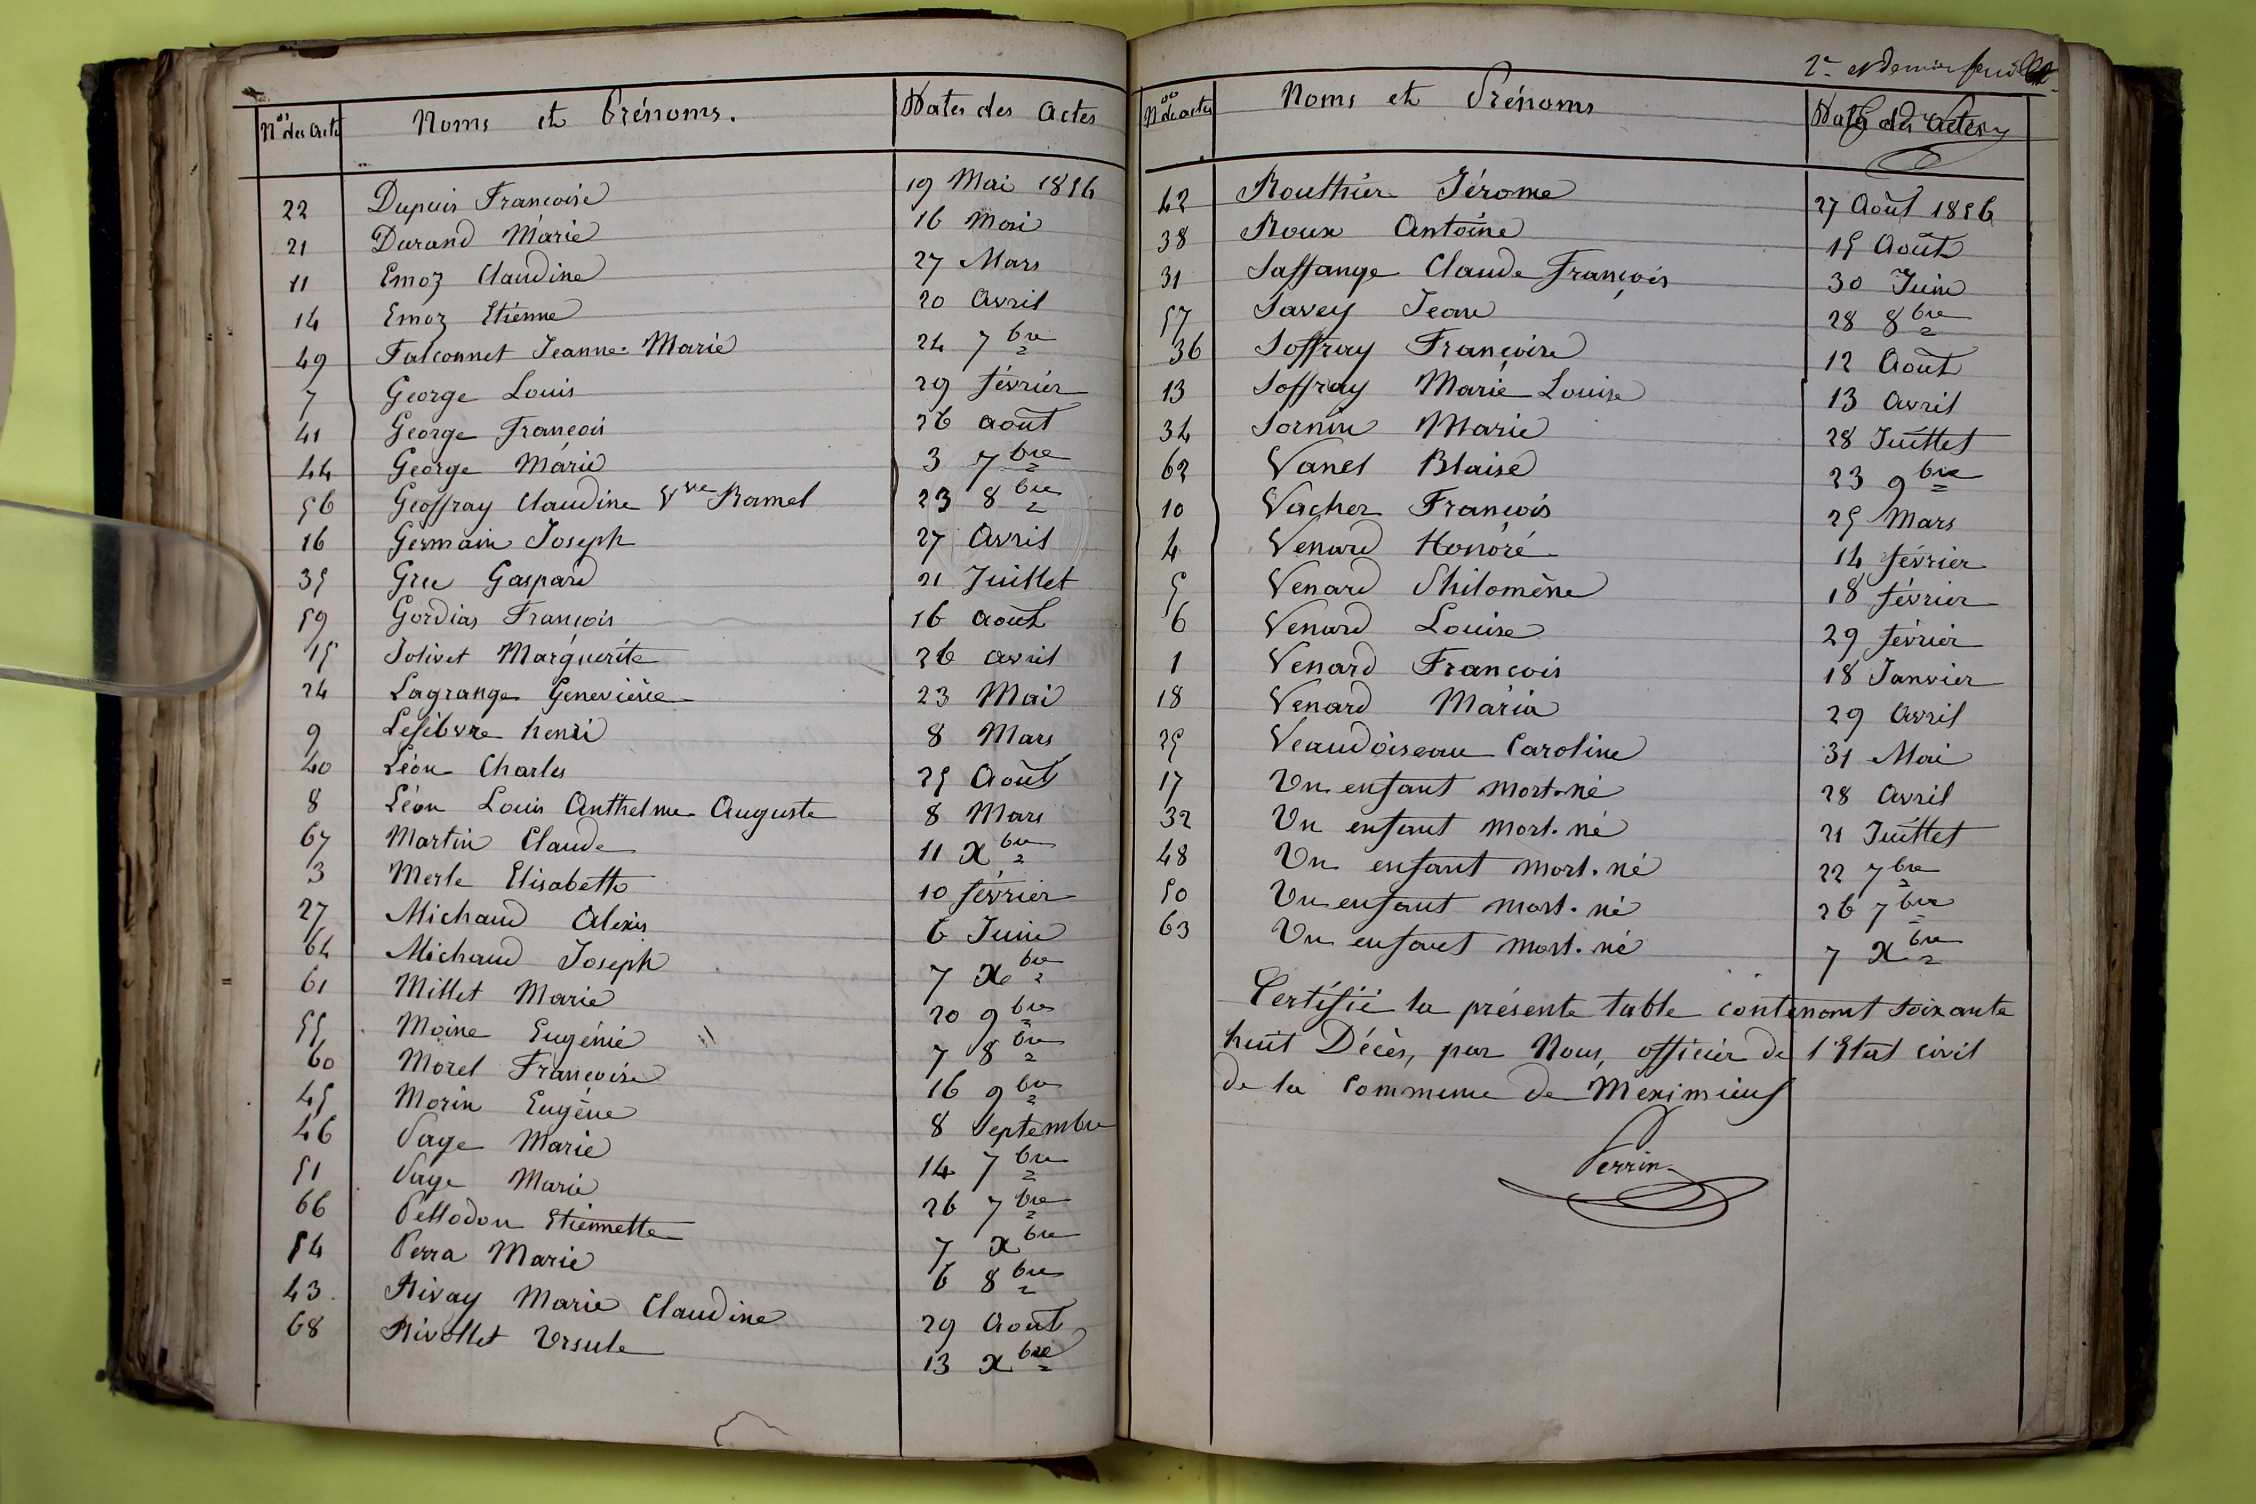 Nos des Actes Noms et Prénoms. Dates des Actes
22 Dupuis Françoise 19 Mai 1856
21 Durand Marie 16 Mai
11 Emoz Claudine 27 Mars
14 Emoz Etienne 20 Avril
49 Falconnet Jeanne Marie 24 7bre
7 George Louis 29 février
41 George François 26 août
44 George Marie 3 7bre
56 Geoffray Claudine Vve Ramel 23 8bre
16 Germain Joseph 27 Avril
35 Gru Gaspard 21 Juillet
59 Gordias François 16 août
15 Jolivet Marguerite 26 avril
24 Lagrange Geneviève 23 Mai
9 Lefebvre henri 8 Mars
40 Léon Charles 25 Août
8 Léon Louis Anthelme Auguste 8 Mars
67 Martin Claude 11 xbre
3 Merle Elisabeth 10 février
27 Michaud Alexis 6 Juin
64 Michaud Joseph 7 xbre
61 Millet Marie 20 9bre
55 Moine Eugénie 7 8bre
60 Morel Françoise 16 9bre
45 Morin Eugène 8 Septembre
46 Page Marie 14 7bre
51 Page Marie 26 7bre
66 Pellodon Etiennette 7 xbre
54 Perra Marie 6 8bre
43 Rivay Marie Claudine 29 Août
68 Rivollet Ursule 13 xbre
2e et dernier feuillet
Nos des actes Noms et Prénoms Dates des Actes
42 Routhier Jérome 27 Août 1856
38 Roux Antoine 15 Août
31 Saffange Claude François 30 Juin
57 Savey Jean 28 8bre
36 Soffray Françoise 12 Août
13 Soffray Marie Louise 13 Avril
34 Sornin Marie 28 Juillet
62 Vanel Blaise 23 9bre
10 Vacher François 25 Mars
4 Venard Honoré 14 février
5 Venard Philomène 18 février
6 Venard Louise 29 février
1 Venard François 18 Janvier
18 Venard Maria 29 Avril
25 Veaudoiseau Caroline 31 Mai
17 Un enfant mort-né 28 Avril
32 Un enfant mort-né 21 Juillet
48 Un enfant mort-né 22 7bre
50 Un enfant mort-né 26 7bre
63 Un enfant mort-né 7 xbre
Certifié la présente table contenant soixante
huit Décès, par Nous, officier de l'Etat civil
de la Commune de Meximieux
Perrin